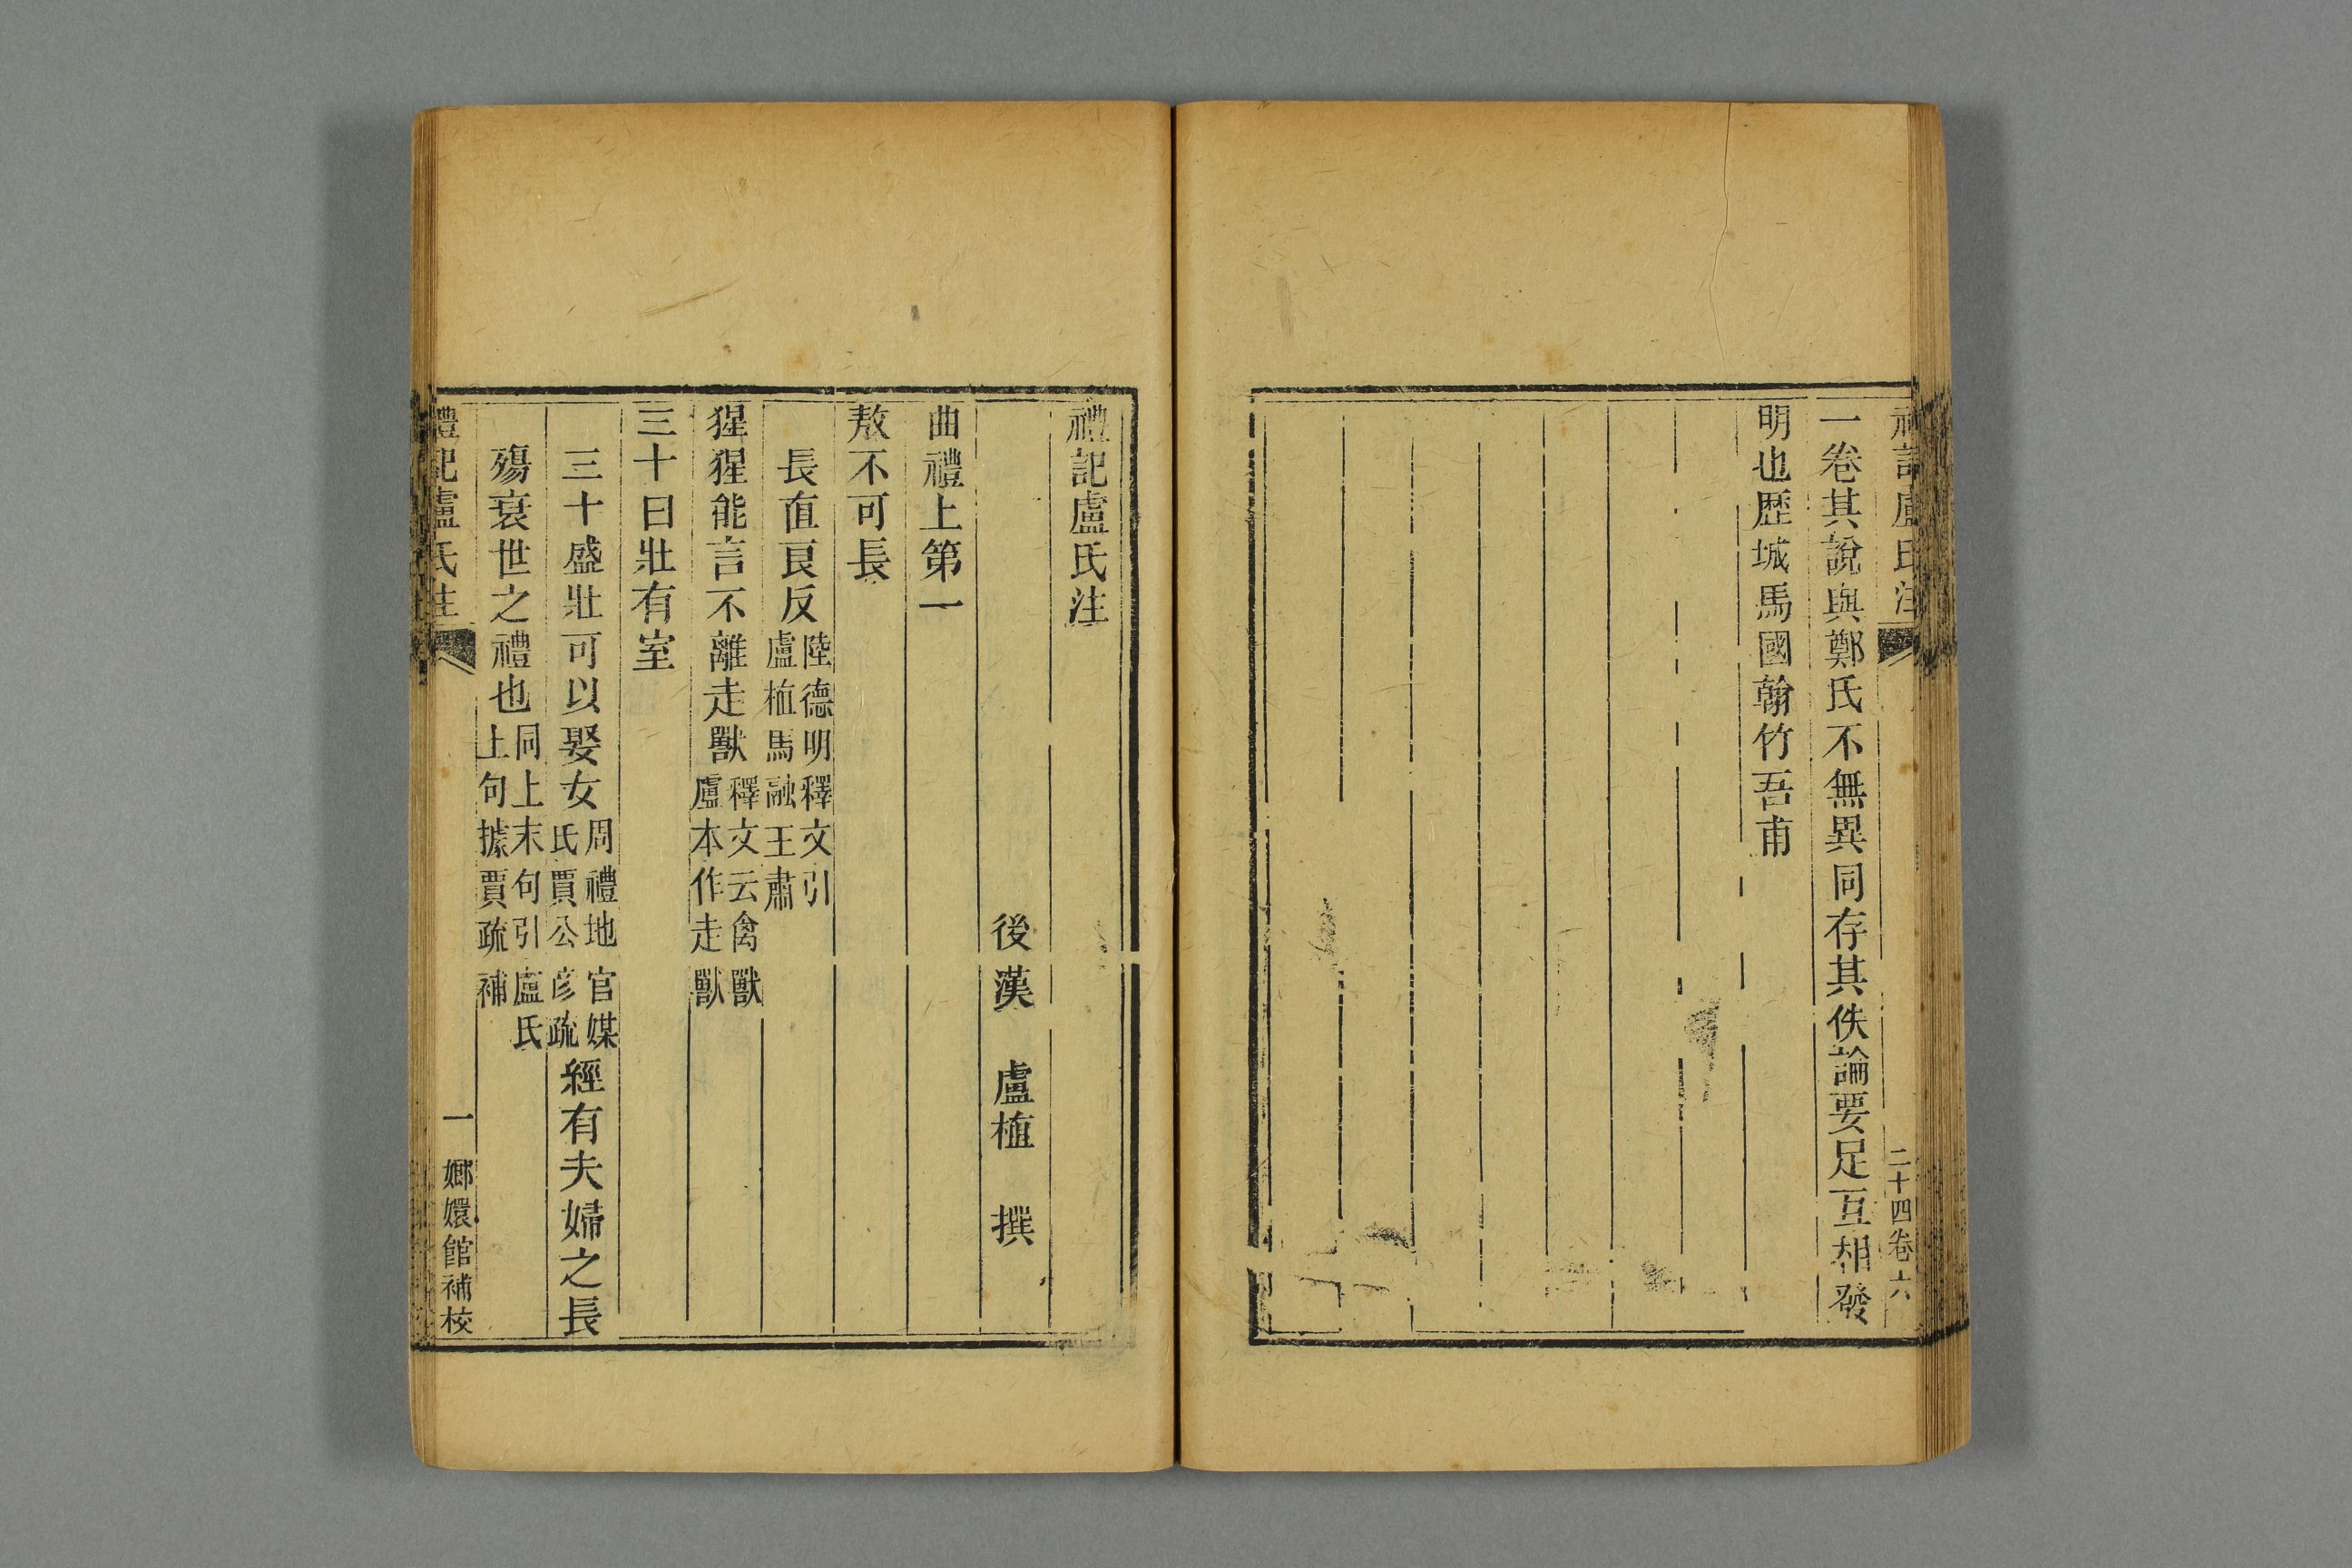 禮記盧氏注
二十四卷六
一卷其說與鄭氏不無異同存其佚論要足互相發
明也歷城馬國翰竹吾甫
禮記盧氏注
後漢 盧植 撰
曲禮上第一
敖不可長
長直良反陸德明釋文引
盧植馬融王肅
猩猩能言不離走獸釋文云禽獸
盧本作走獸
三十曰壯有室
三十盛壯可以娶女周禮地官媒
氏賈公彥疏經有夫婦之長
殤衰世之禮也同上末句引盧氏
上句據賈疏補
禮記盧氏注
一
嫏嬛館補校